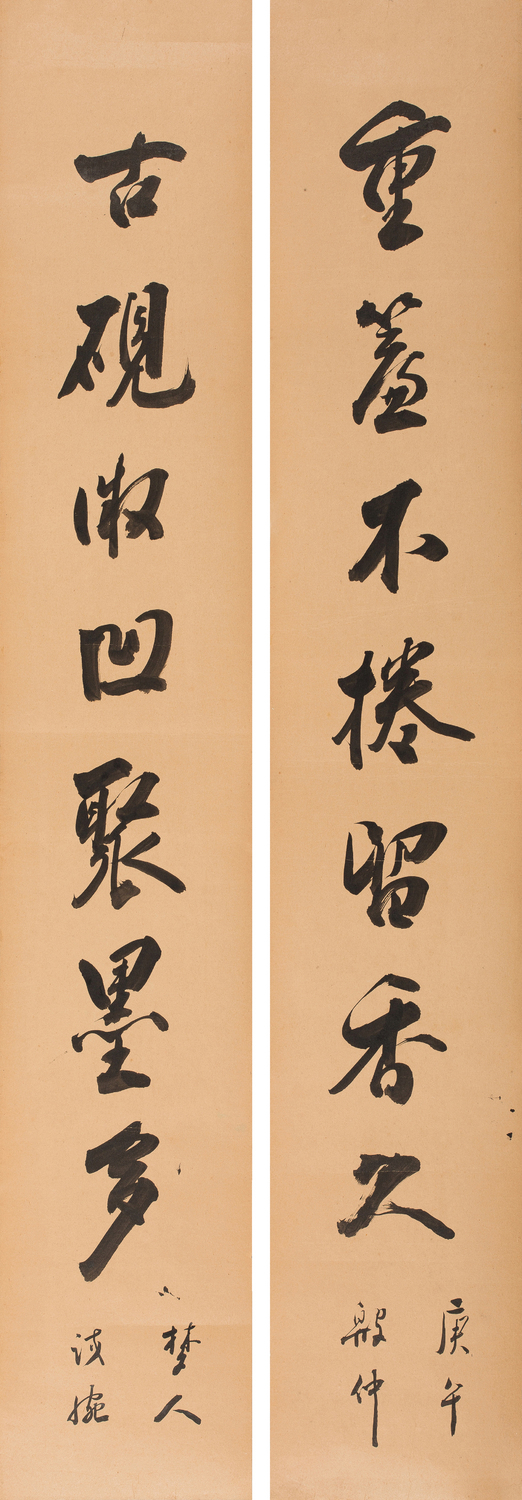 重簾不捲留香久
庚午
仲
古硯微凹聚墨多
梦人